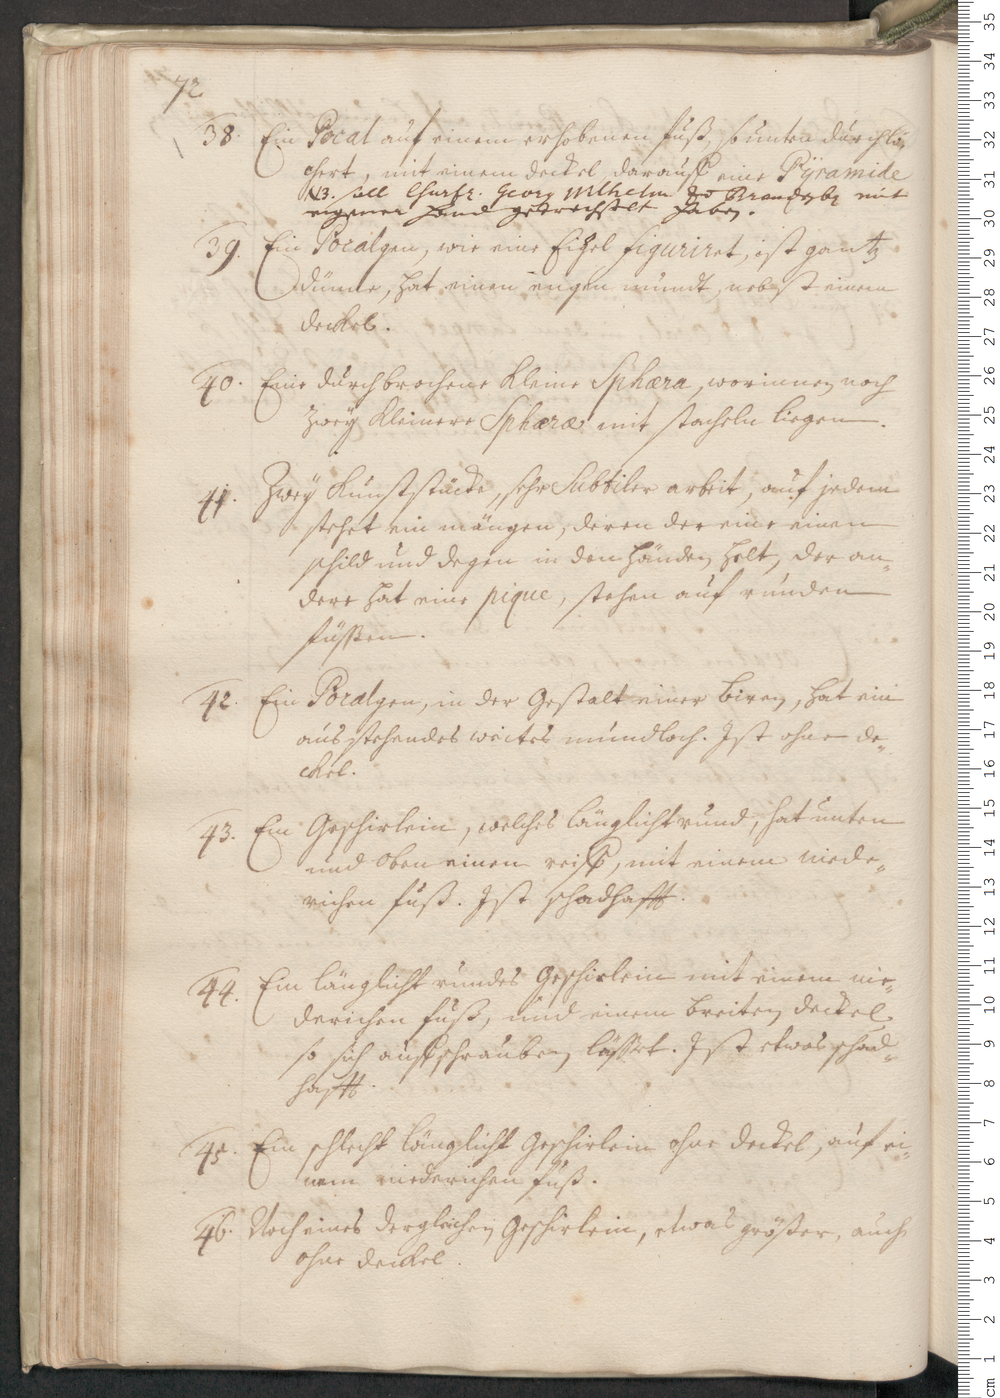 72
38. Ein Pocal auf einem erhobenen fuß, so unten durchlö„
chert, mit einem deckel, darauff eine Pyramide
NB. soll Churf. Georg Wilhelm zu Brandenbg mit
eigener Hand gedrechselt haben.
39. Ein Pocalgen, wie eine Eichel figuriret, ist gantz
dünne, hat einen engen mundt, nebst einem
deckel.
40. Eine durchbrochene kleine Sphæra, worinnen noch
zwey kleinere Sphæræ mit stacheln liegen.
41. Zwey Kunststücke, sehr subtiler arbeit, auf jedem
stehet ein mängen, deren der eine einen
schild und degen in den händen helt, der an„
dere hat eine pique, stehen auf runden
füssen.
42. Ein Pocalgen, in der Gestalt einer Biren, hat ein
aus stehendes weites mundloch. Ist ohne de„
ckel.
43. Ein Geschirlein, welches länglicht rund, hat unten
und oben einen reiff, mit einem niede„
richen fuß. Ist schadhafft.
44. Ein länglicht rundes Geschirlein mit einem nie„
derichen fuß, und einem breiten deckel
so sich auffschrauben lässet. Ist etwas schad„
hafft.
45. Ein schlecht länglicht Geschirlein ohne deckel, auf ei„
nem niederichen fuß.
46. Noch eines dergleichen Geschirlein, etwas größer, auch
ohne deckel.
35
34
33
32
31
30
29
28
27
26
25
24
23
22
21
20
19
18
17
16
15
14
13
12
11
10
9
8
7
6
5
4
3
2
1
cm